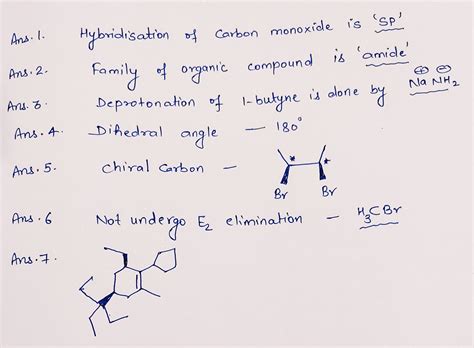 Ans.1. Hybridisation of Carbon monoxide is 'SP'
Ans.2. Family of organic compound is 'amide'
Ans.3. Deprotonation of 1-butyne is done by Na⊕ NH₂⊖
Ans.4. Dihedral angle — 180°
Ans.5. Chiral Carbon — * *
Br Br
Ans.6 Not undergo E₂ elimination — H₃CBr
Ans.7.